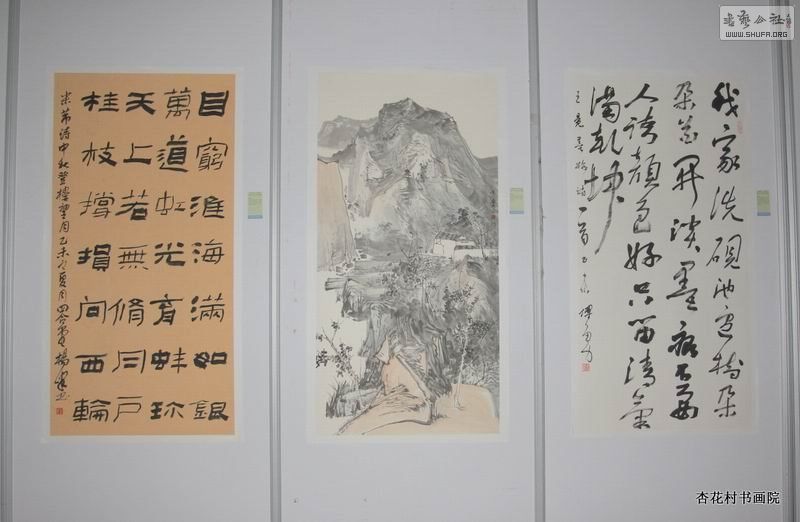 書藝公社
WWW.SHUFA.ORG
目窮淮海滿如銀
萬道虹光育蚌珎
天上若無脩月戶
桂枝撐損向西輪
米芾詩中秋登樓望月乙未之夏月
我家洗硯池邊樹朵
朵花開淡墨痕不要
人誇顏色好只留清氣
滿乾坤
王冕墨梅詩一首乙未
杏花村书画院